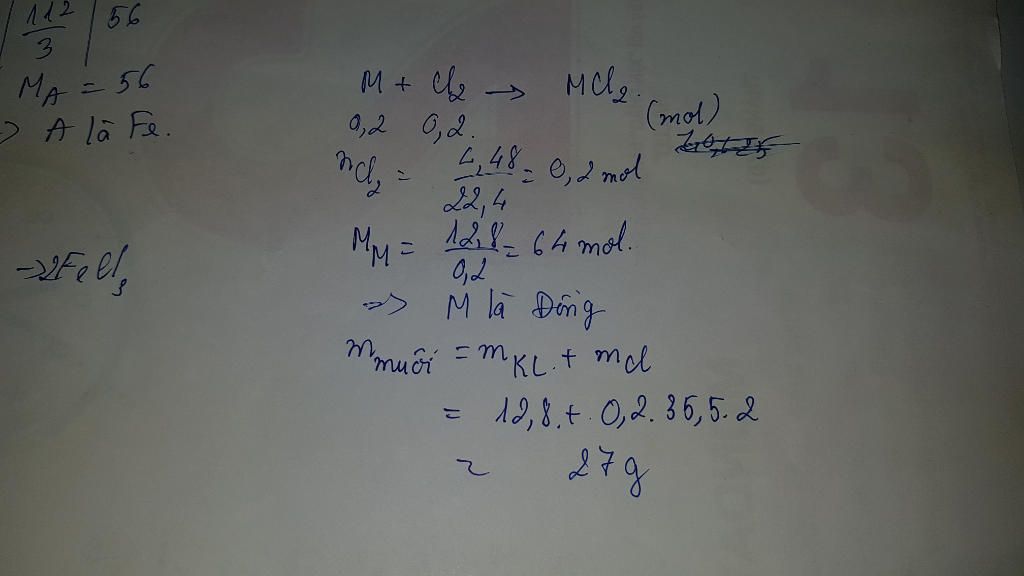 112/3 | 56
M_A = 56
=> A là Fe.
→ 2FeCl₃
M + Cl₂ → MCl₂.
0,2 0,2. (mol)
n_Cl₂ = 4,48/22,4 = 0,2 mol
M_M = 12,8/0,2 = 64 mol.
=> M là Đồng
m_muối = m_KL + m_Cl
= 12,8 + 0,2.35,5.2
= 27g